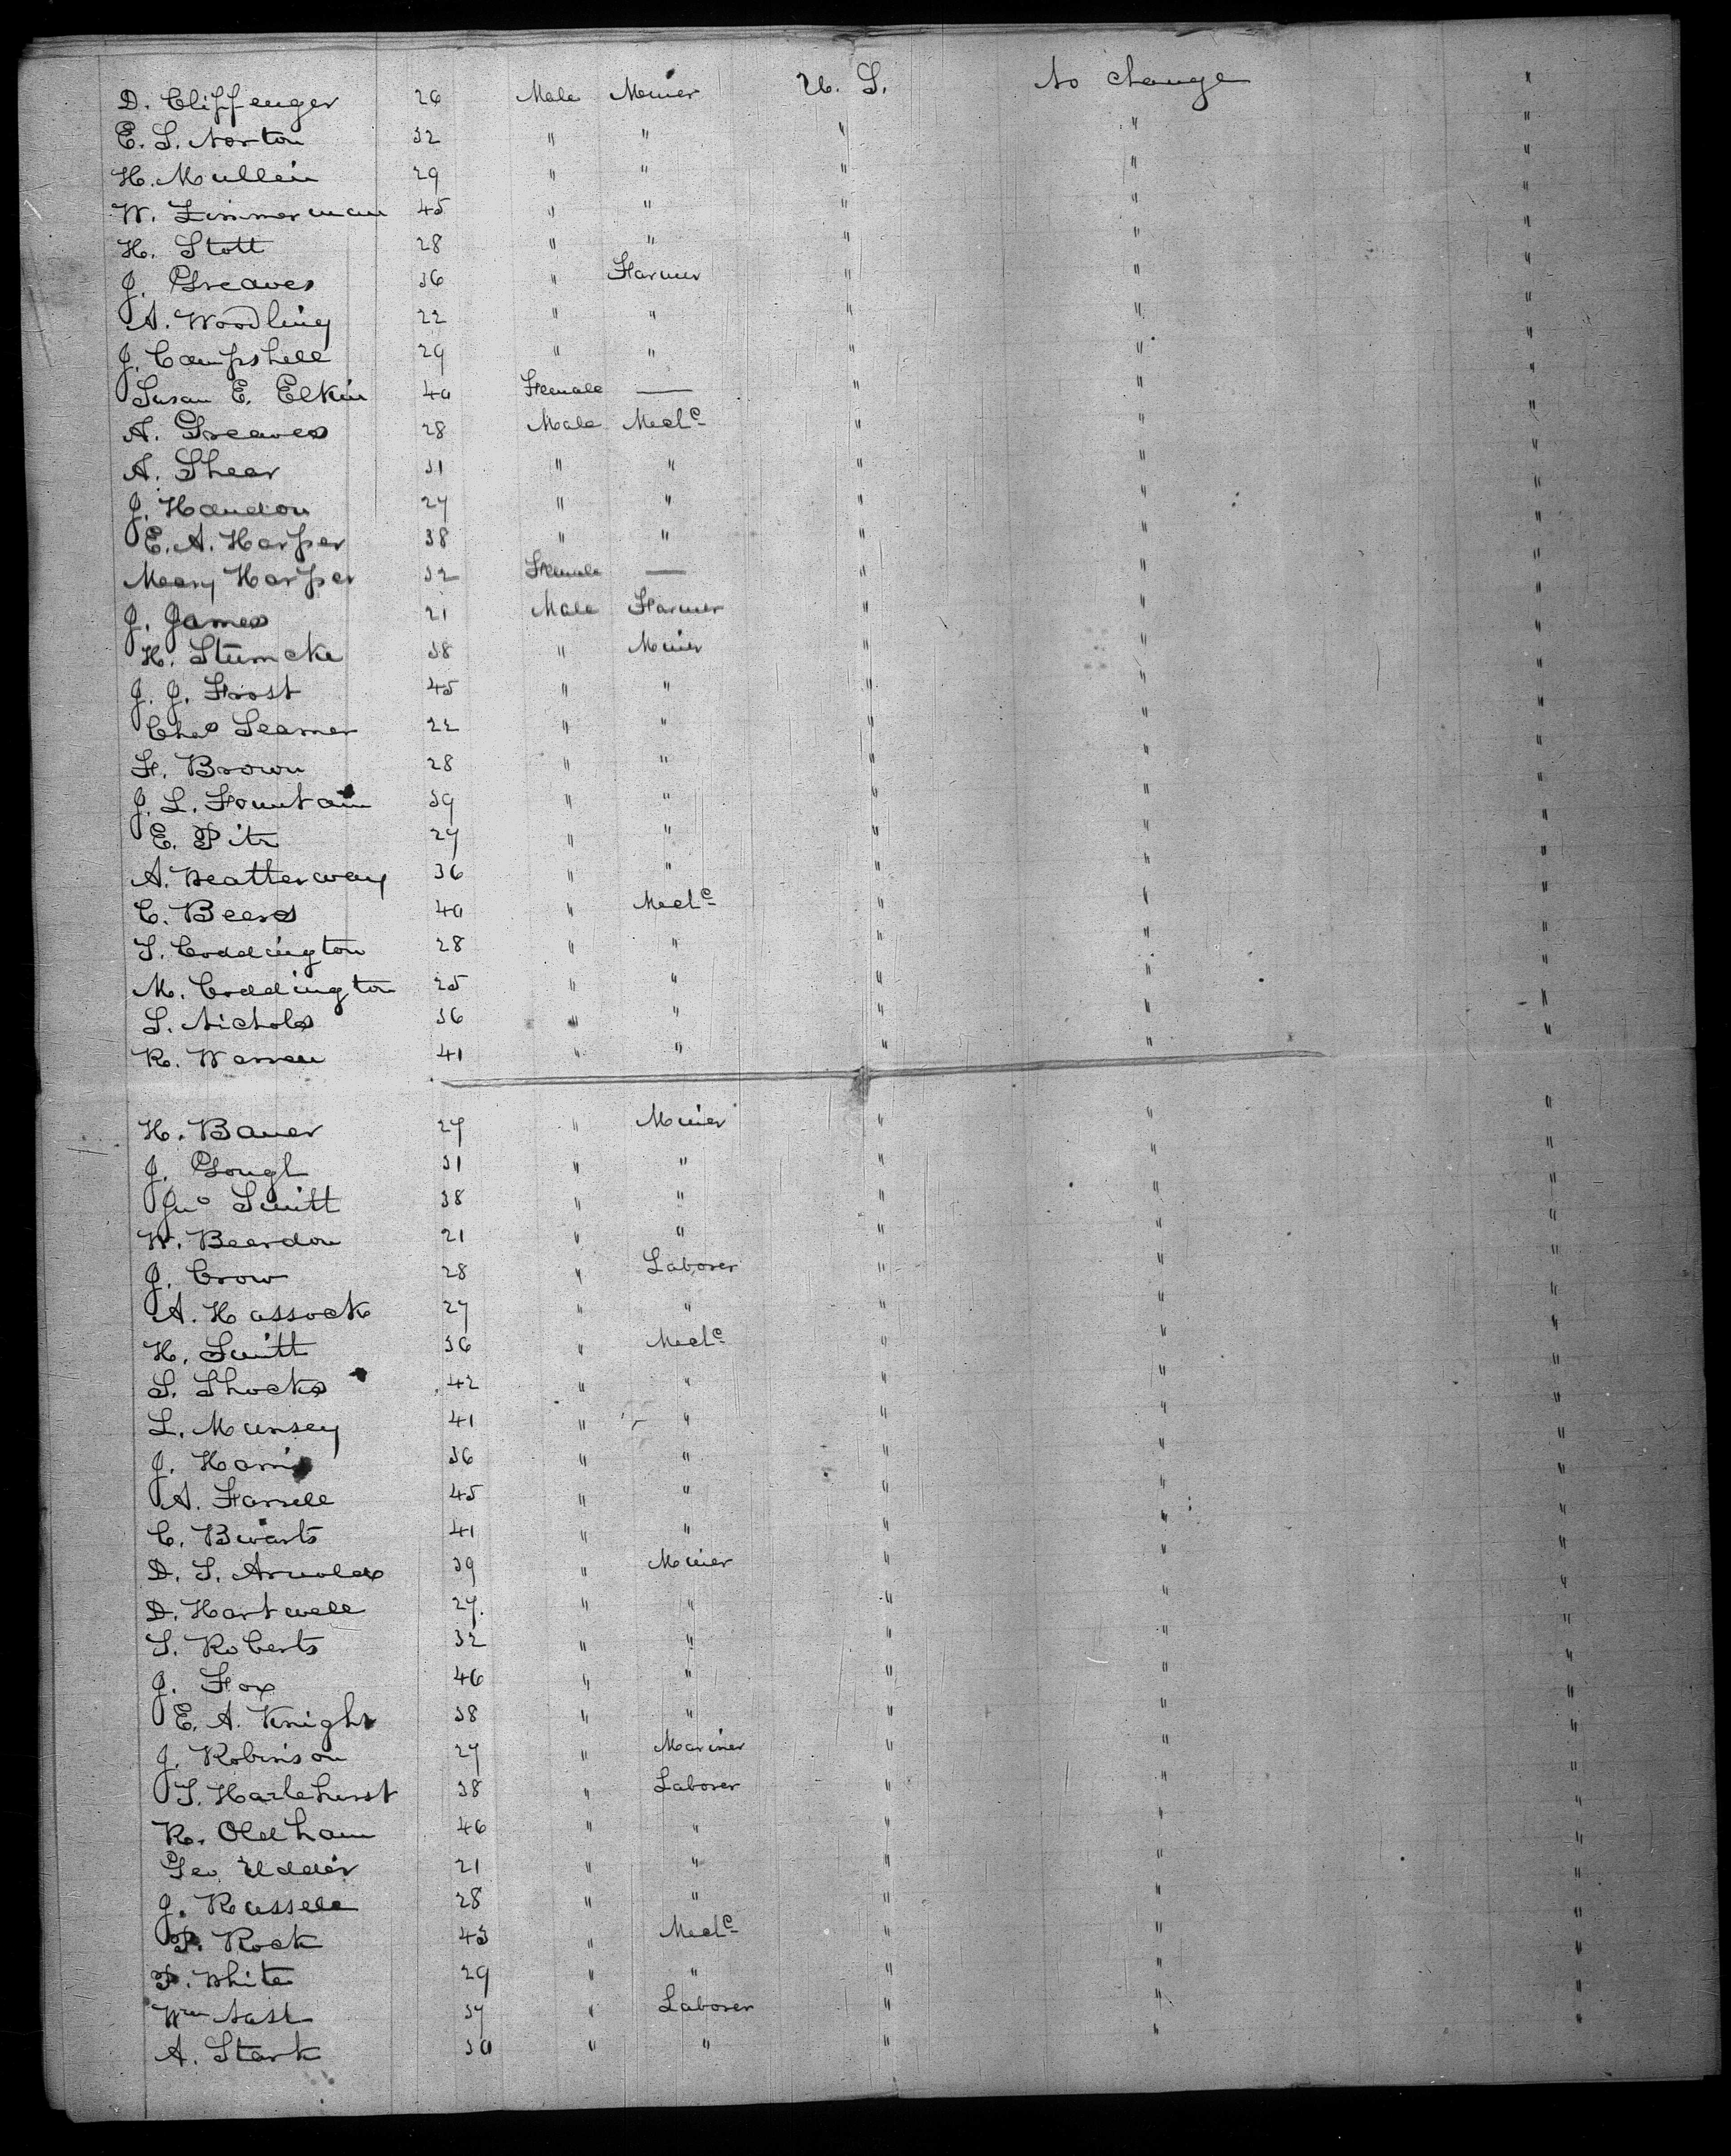 D. Cliffenger 26 Male Miner U. S. No change "
E. S. Norton 32 " " " " "
H. Mullin 29 " " " " "
W. Zimmerman 45 " " " " "
H. Stott 28 " " " " "
J. Greaves 36 " Farmer " " "
A. Woodling 22 " " " " "
J. Campshell 29 " " " " "
Susan E. Elkin 40 Female — " " "
A. Greaves 28 Male Mechc " " "
A. Shear 31 " " " " "
J. Handon 27 " " " " "
E. A. Harper 38 " " " " "
Mary Harper 32 Female — " " "
J. James 21 Male Farmer " " "
H. Stümcke 38 " Miner " " "
J. J. Frost 45 " " " " "
Chas Seamer 22 " " " " "
F. Brown 28 " " " " "
J. L. Fountain 39 " " " " "
E. Pitz 27 " " " " "
A. Neatterway 36 " " " " "
C. Beers 40 " Mechc " " "
T. Coddington 28 " " " " "
M. Coddington 25 " " " " "
S. Nichols 36 " " " " "
R. Warren 41 " " " " "
H. Bauer 27 " Miner " " "
J. Gough 31 " " " " "
Jno Smith 38 " " " " "
W. Beardon 21 " " " " "
J. Crow 28 " Laborer " " "
A. Hassock 27 " " " " "
H. Smith 36 " Mechc " " "
S. Shocks 42 " " " " "
L. Munsey 41 " " " " "
J. Harris 36 " " " " "
A. Farrell 45 " " " " "
C. Bwarts 41 " " " " "
D. S. Arnold 39 " Miner " " "
D. Hartwell 27 " " " " "
S. Roberts 32 " " " " "
J. Fox 46 " " " " "
E. A. Knight 38 " " " " "
J. Robinson 27 " Mariner " " "
T. Hazlehurst 38 " Laborer " " "
R. Oldham 46 " " " " "
Geo Udder 21 " " " " "
J. Russell 28 " " " " "
P. Rock 43 " Mechc " " "
F. White 29 " " " " "
Wm Nash 37 " Laborer " " "
A. Stark 30 " " " " "